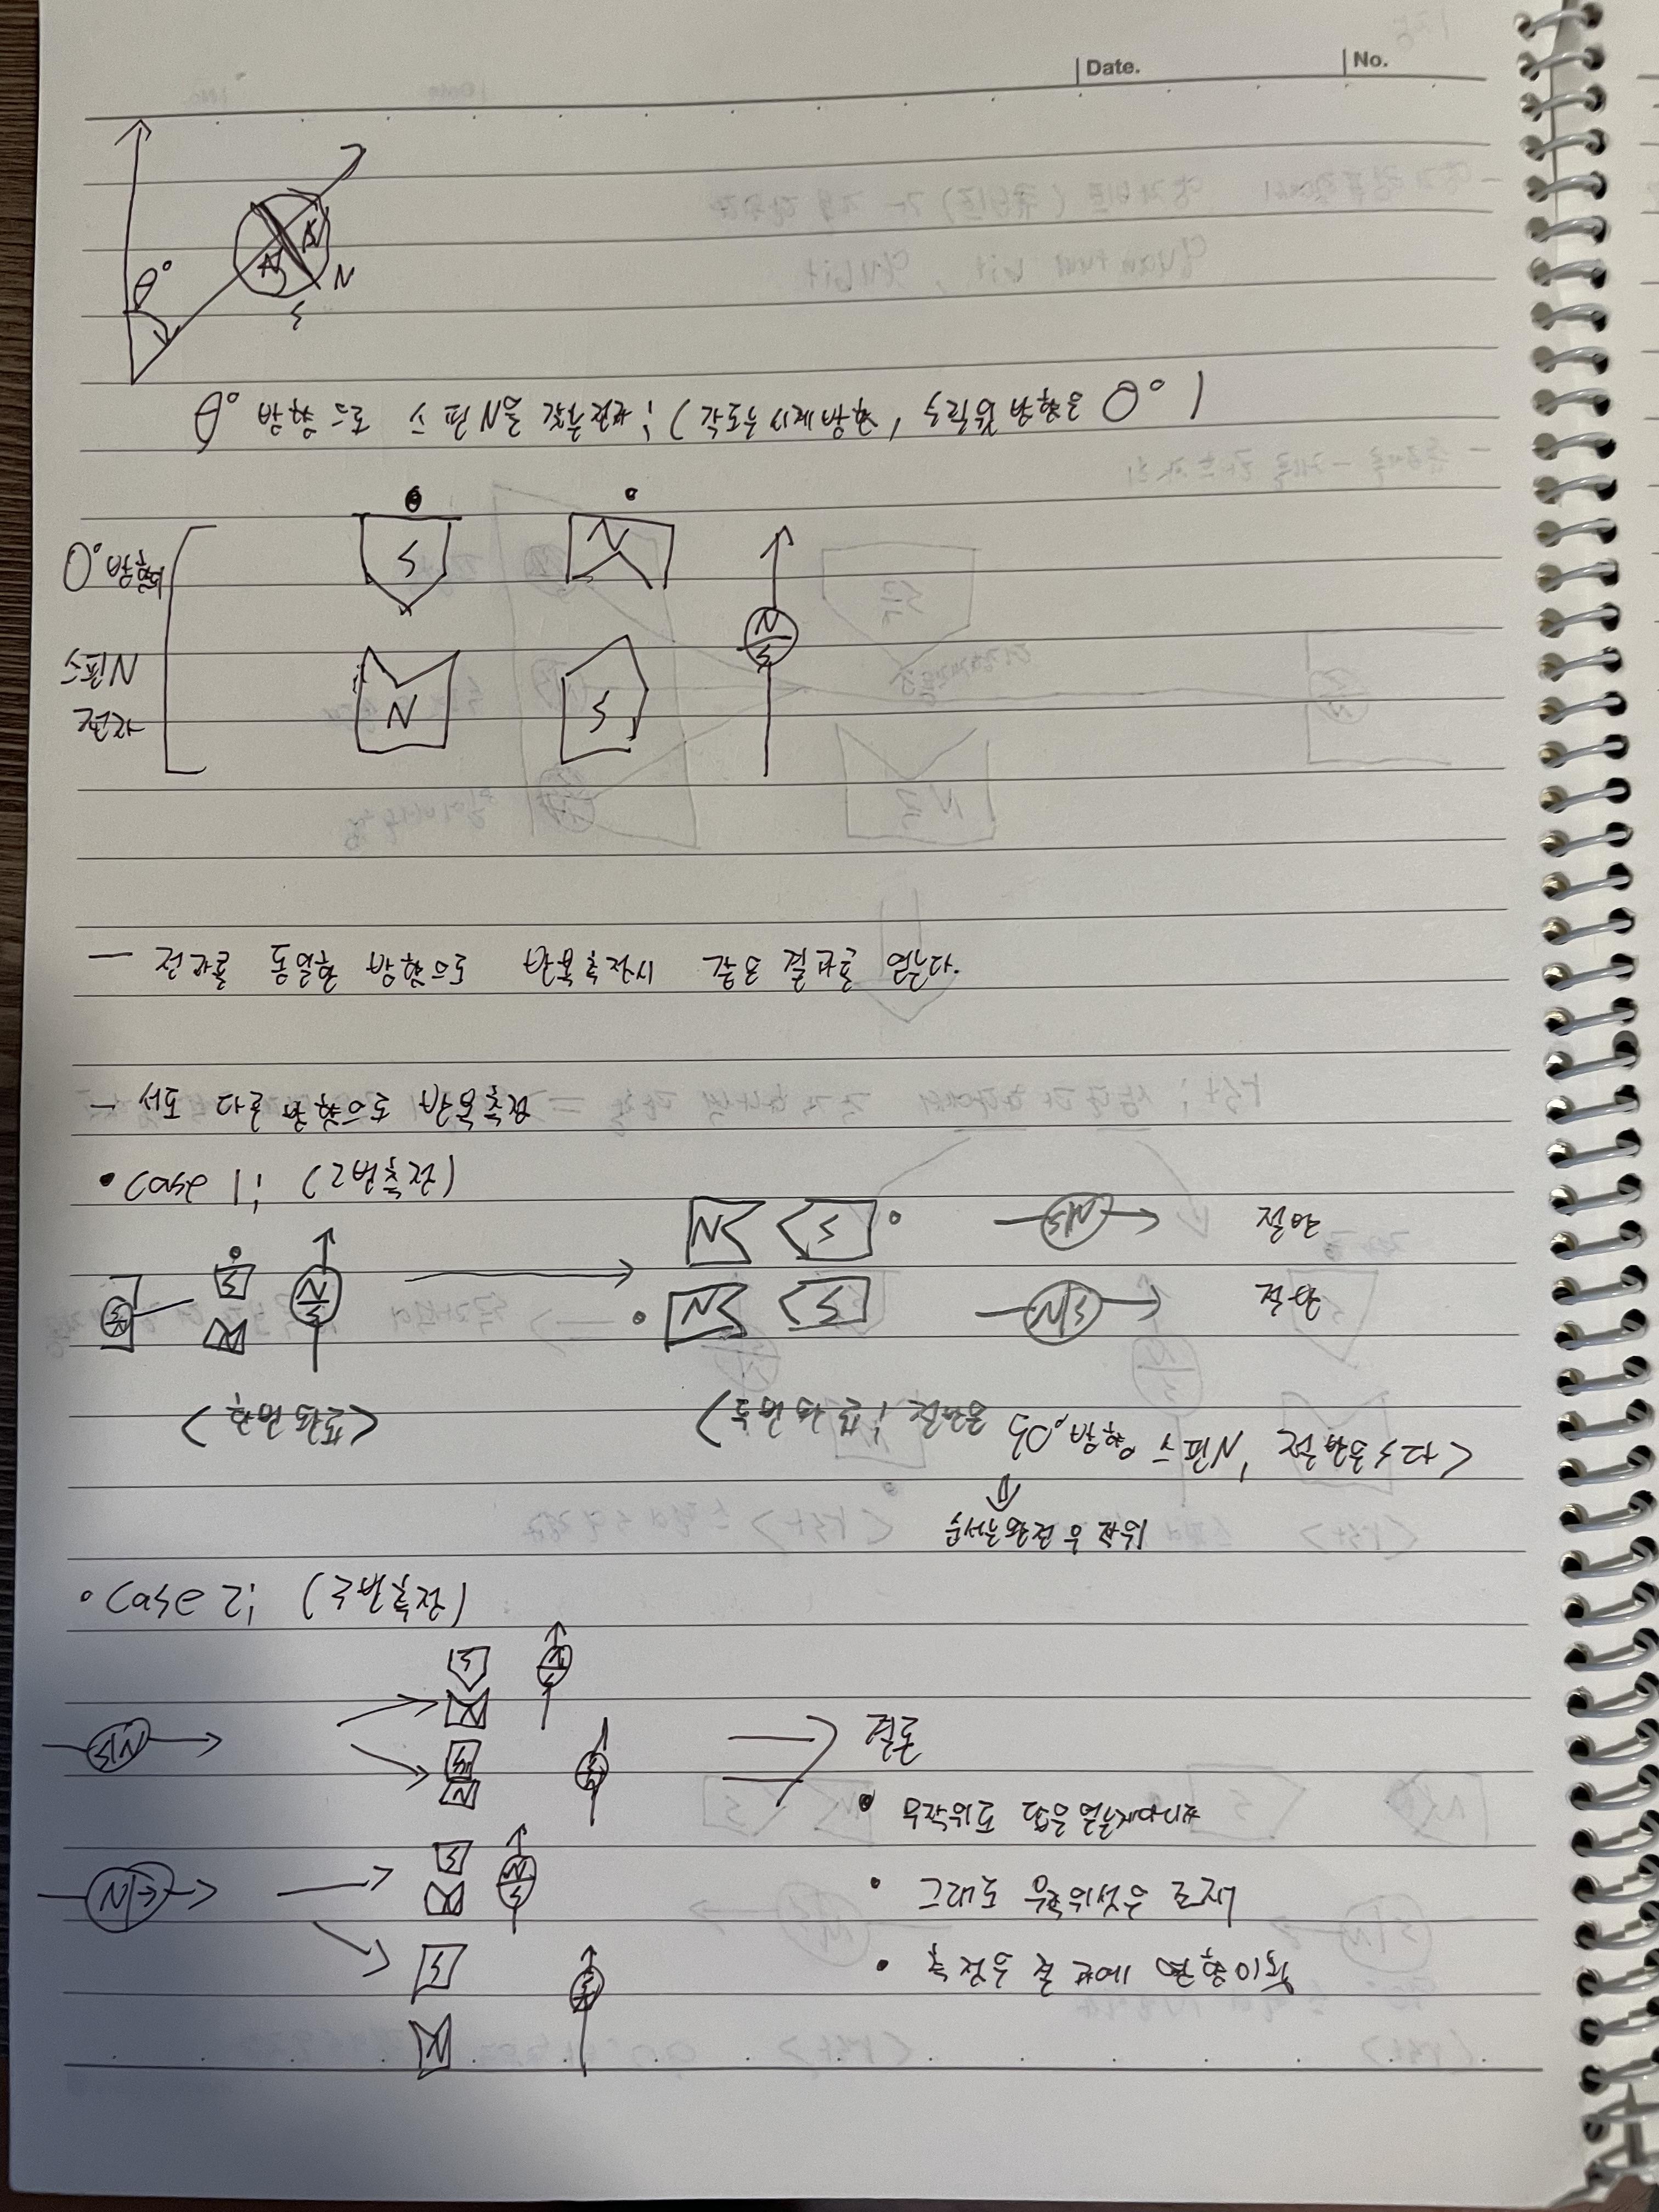 Date.
No.
θ°
N
S
θ° 방향으로 스핀N을 갖는전자; (각도는시계방향, 수직윗방향은 0°)
S N
0° 방향의
N
S
스핀N
N S
전자
- 전자를 동일한 방향으로 반복측정시 같은 결과를 얻는다.
- 서로 다른 방향으로 반복측정
• case 1; (2번측정)
N S S|N 절반
S N S
N
N S N|S 절반
<한번완료> <두번완료; 절반은 90°방향 스핀N, 절반은 S다>
⇓
순서는완전 무작위
• case 2; (3번측정)
S N
S
N
S|N 결론
S
N
• 무작위로 답을 얻는게아니다
S N
S
N
• 그대로 무작위성은 존재
S
• 측정은 결과에 영향이
N